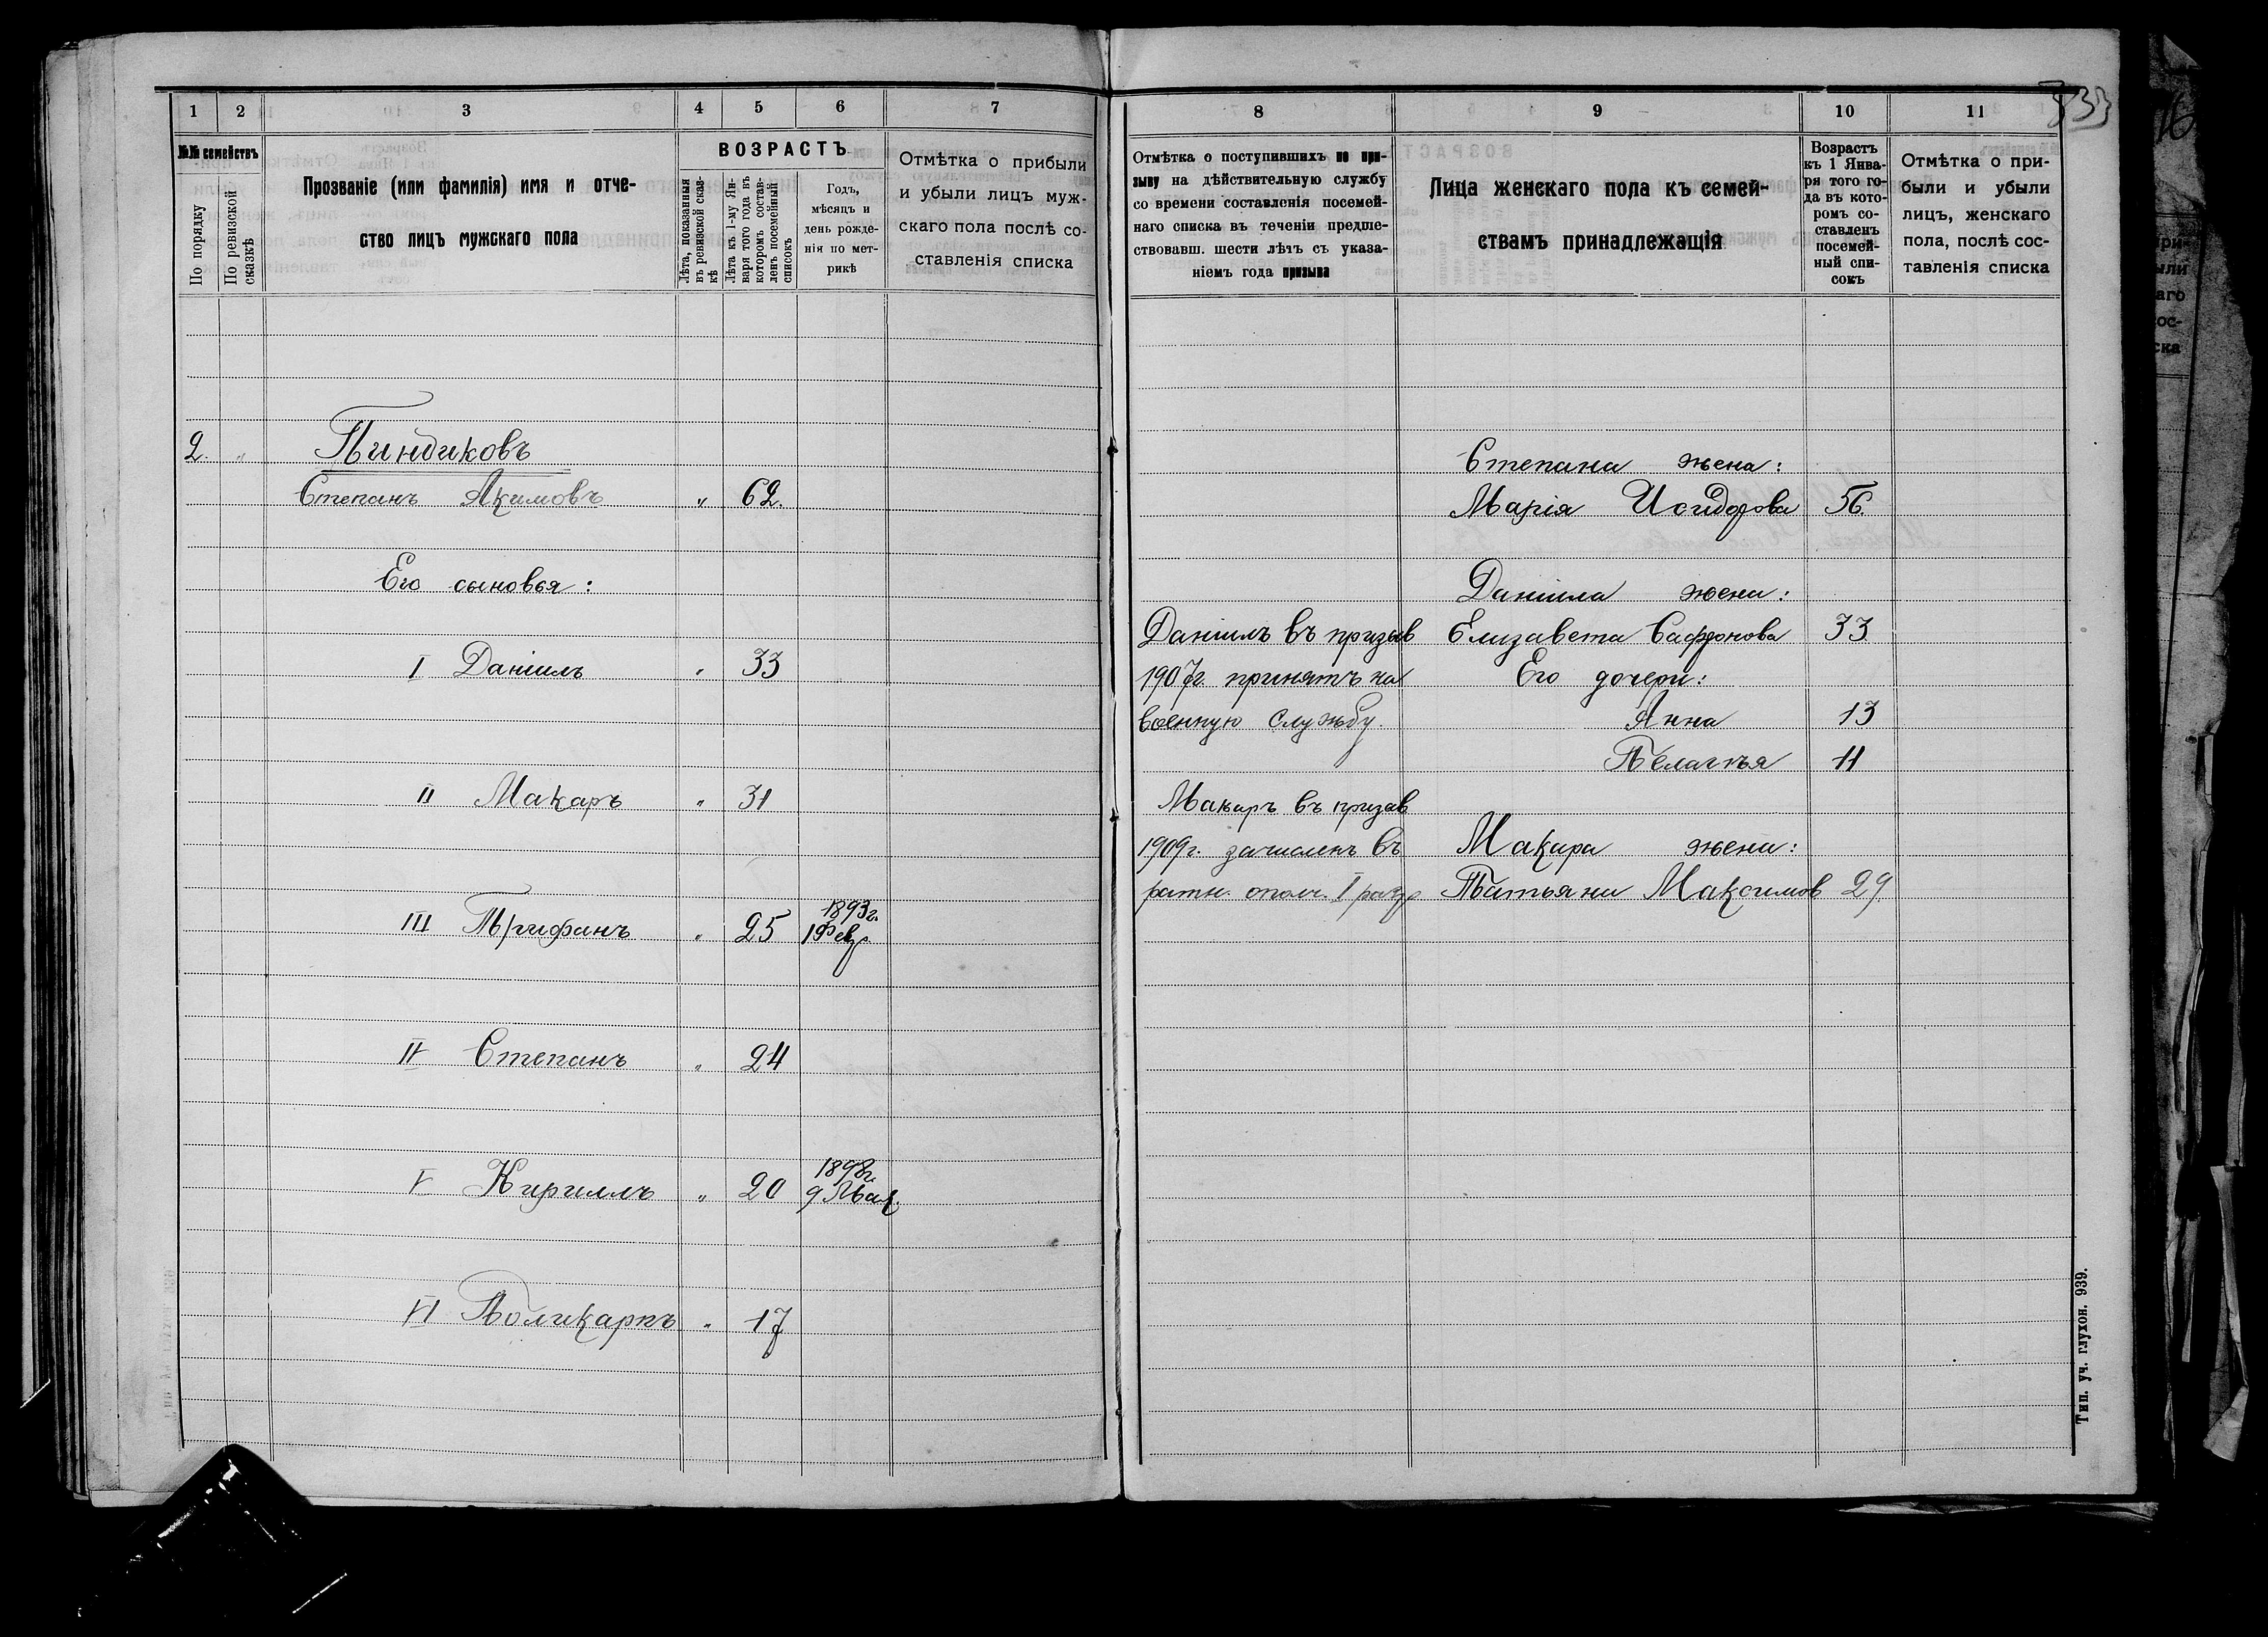 1 2 3 4 5 6 7
№№ семействъ
По порядку
По ревизской сказкѣ
Прозваніе (или фамилія) имя и отче-
ство лицъ мужскаго пола
ВОЗРАСТЪ
Лѣта, показанныя
въ ревизской сказ-
кѣ
Лѣта къ 1-му Ян-
варя того года въ
которомъ состав-
ленъ посемейный
списокъ
Годъ,
мѣсяцъ и
день рожде-
нія по мет-
рикѣ
Отмѣтка о прибыли
и убыли лицъ муж-
скаго пола послѣ со-
ставленія списка
2. „ Пиндиковъ
Степанъ Акимовъ „ 62.
Его сыновья:
I Даніилъ „ 33
II Макаръ „ 31
III Трифанъ „ 25 1893г.
1 Февр.
IV Степанъ „ 24
V Кириллъ „ 20 1898г.
9 Янв.
VI Поликарпъ „ 17
8 9 10 11
833
Отмѣтка о поступившихъ по при-
зыву на дѣйствительную службу
со времени составленія посемей-
наго списка въ теченіи предше-
ствовавш. шести лѣтъ съ указа-
ніемъ года призыва
Лица женскаго пола къ семей-
ствамъ принадлежащія
Возрастъ
къ 1 Янва-
ря того го-
да въ кото-
ромъ со-
ставленъ
посемей-
ный спи-
сокъ
Отмѣтка о при-
были и убыли
лицъ, женскаго
пола, послѣ сос-
тавленія списка
Степана жена:
Марія Исидорова 56.
Даніила жена:
Даніилъ въ призыв Елизавета Сафронова 33
1907г. принятъ на Его дочери:
военную службу. Анна 13
Пелагѣя 11
Макаръ въ призыв
1909г. зачисленъ въ Макара жена:
ратн. ополч. I разр Татьяна Максимов 29.
Тип. уч. глухон. 939.